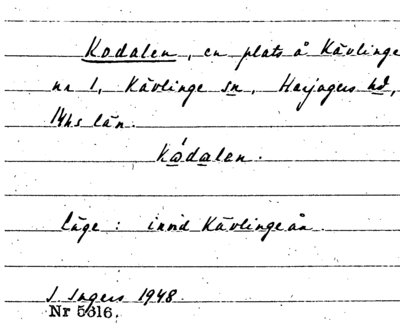 Kodalen, en plats å Kävlinge
nr 1, Kävlinge sn, Harjagers hd,
Mhs län.
Kòdalen.
läge: invid Kävlingeån.
I. Ingers 1948.
Nr 5616.